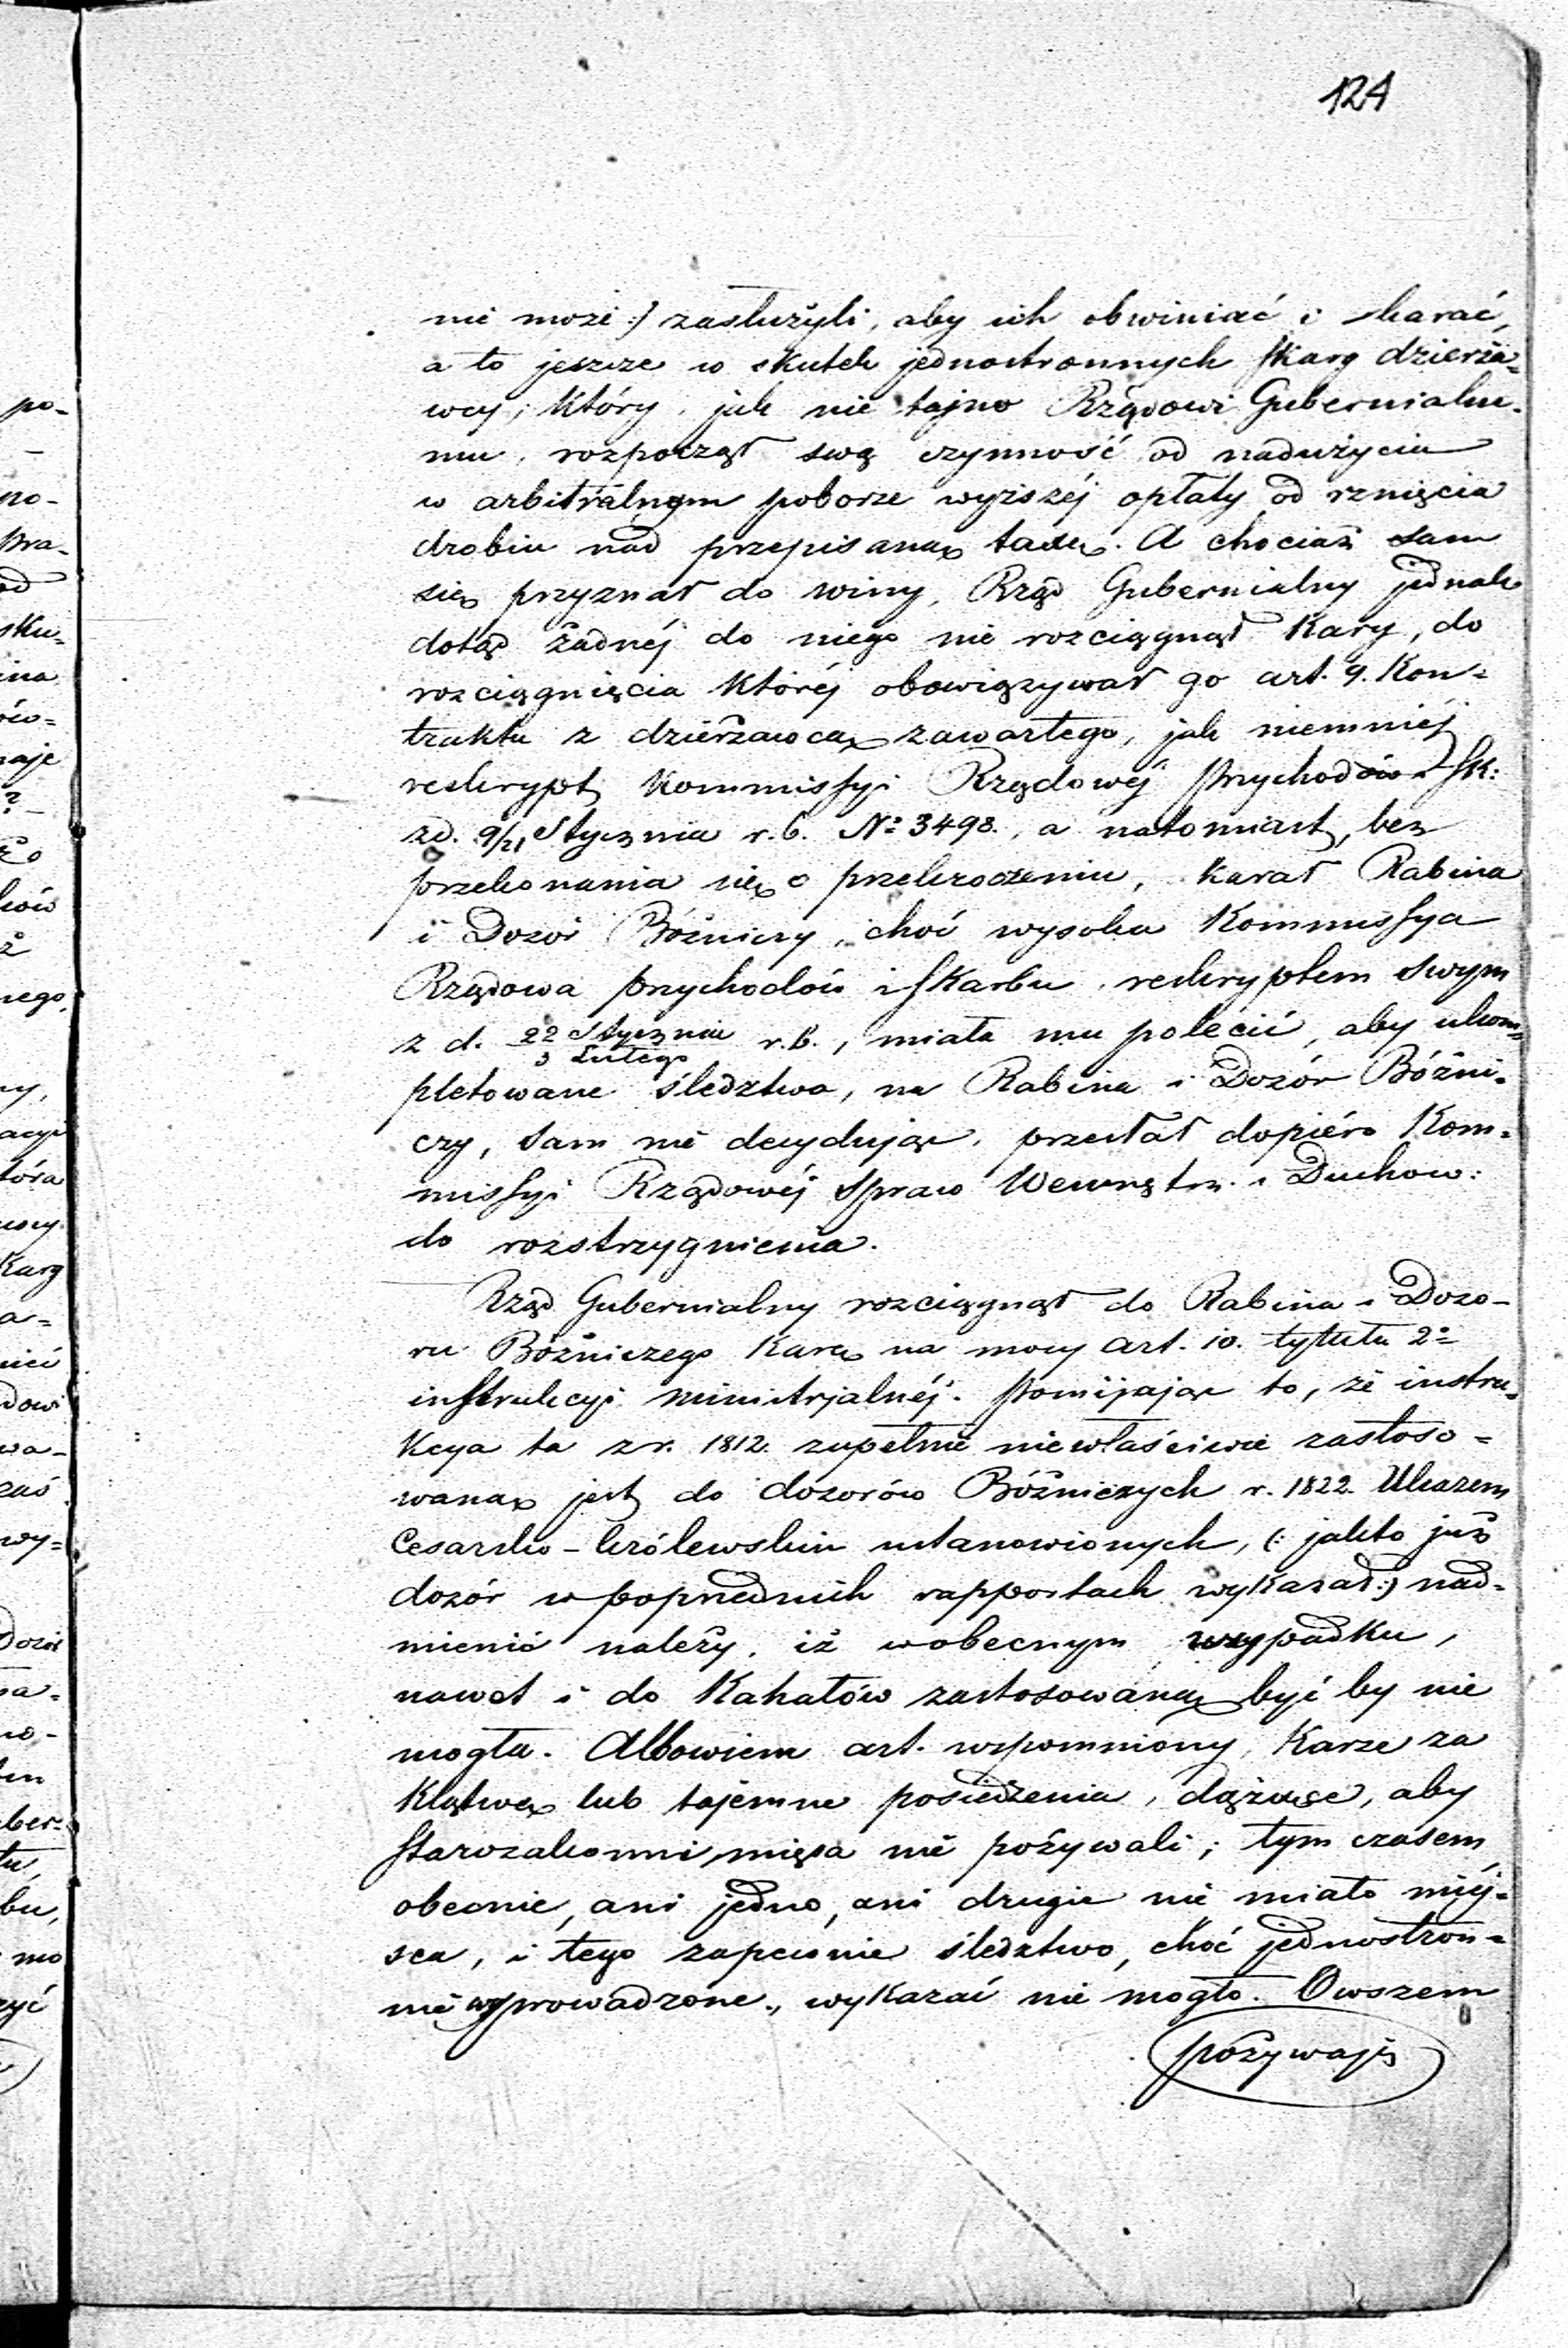 124
nie może:) zasłużyli, aby ich obwiniać i skarać,
a to jeszcze w skutek jednostronnych skarg dzierża=
wcy, który, jak nie tajno Rządowi Gubernialne=
mu, rozpoczął swą czynność od nadużycia
w arbitralnym poborze wyższéj opłaty od rznięcia
drobiu nad przepisaną taxę. A chociaż sam
się przyznał do winy, Rząd Gubernialny jednak
dotąd żadnéj do niego nie rozciągnął kary, do
rozciągnięcia któréj obowiązywał go art. 9. Kon=
traktu z dzierżawcą zawartego, jak niemniéj
reskrypt Kommissyi Rządowéj Przychodów i Sk:
zd. 9/21 Stycznia r. b. № 3498., a natomiast, bez
przekonania się o przekroczeniu, karał Rabina
i Dozór Bóżniczy, choć wysoka Kommissya
Rządowa Przychodów i Skarbu, reskryptem swym
z d. 22 Stycznia / 3 Lutego r. b., miała mu polécić, aby ukom=
pletowane śledztwa, na Rabina i Dozór Bóżni=
czy, sam nie decydując, przesłał dopiéro Kom=
missyi Rządowéj Spraw Wewnętrz. i Duchow:
do rozstrzygnienia.
Rząd Gubernialny rozciągnął do Rabina i Dozo-
ru Bóżniczego karę na mocy art. 10. tytułu 2o
instrukcyi ministrjalnéj. Pomijając to, że instru=
kcya ta z r. 1812. zupełnie niewłaściwie zastoso=
waną jest do dozorów Bóżniczych r. 1822. Ukazem
Cesarsko-królewskim ustanowionych, (: jakto już
dozór w poprzednich rapportach wykazał:) nad=
mienić należy, iż w obecnym wypadku,
nawet i do Kahałów zastosowaną być by nie
mogła. Albowiem art. wspomniony, karze za
klątwę lub tajemne posiedzenia, dążące, aby
starozakonni mięsa nie pożywali; tym czasem
obecnie, ani jedno, ani drugie nie miało miéj=
sca, i tego zapewnie śledztwo, choć jednostron=
nie wyprowadzone, wykazać nie mogło. Owszem
pożywają